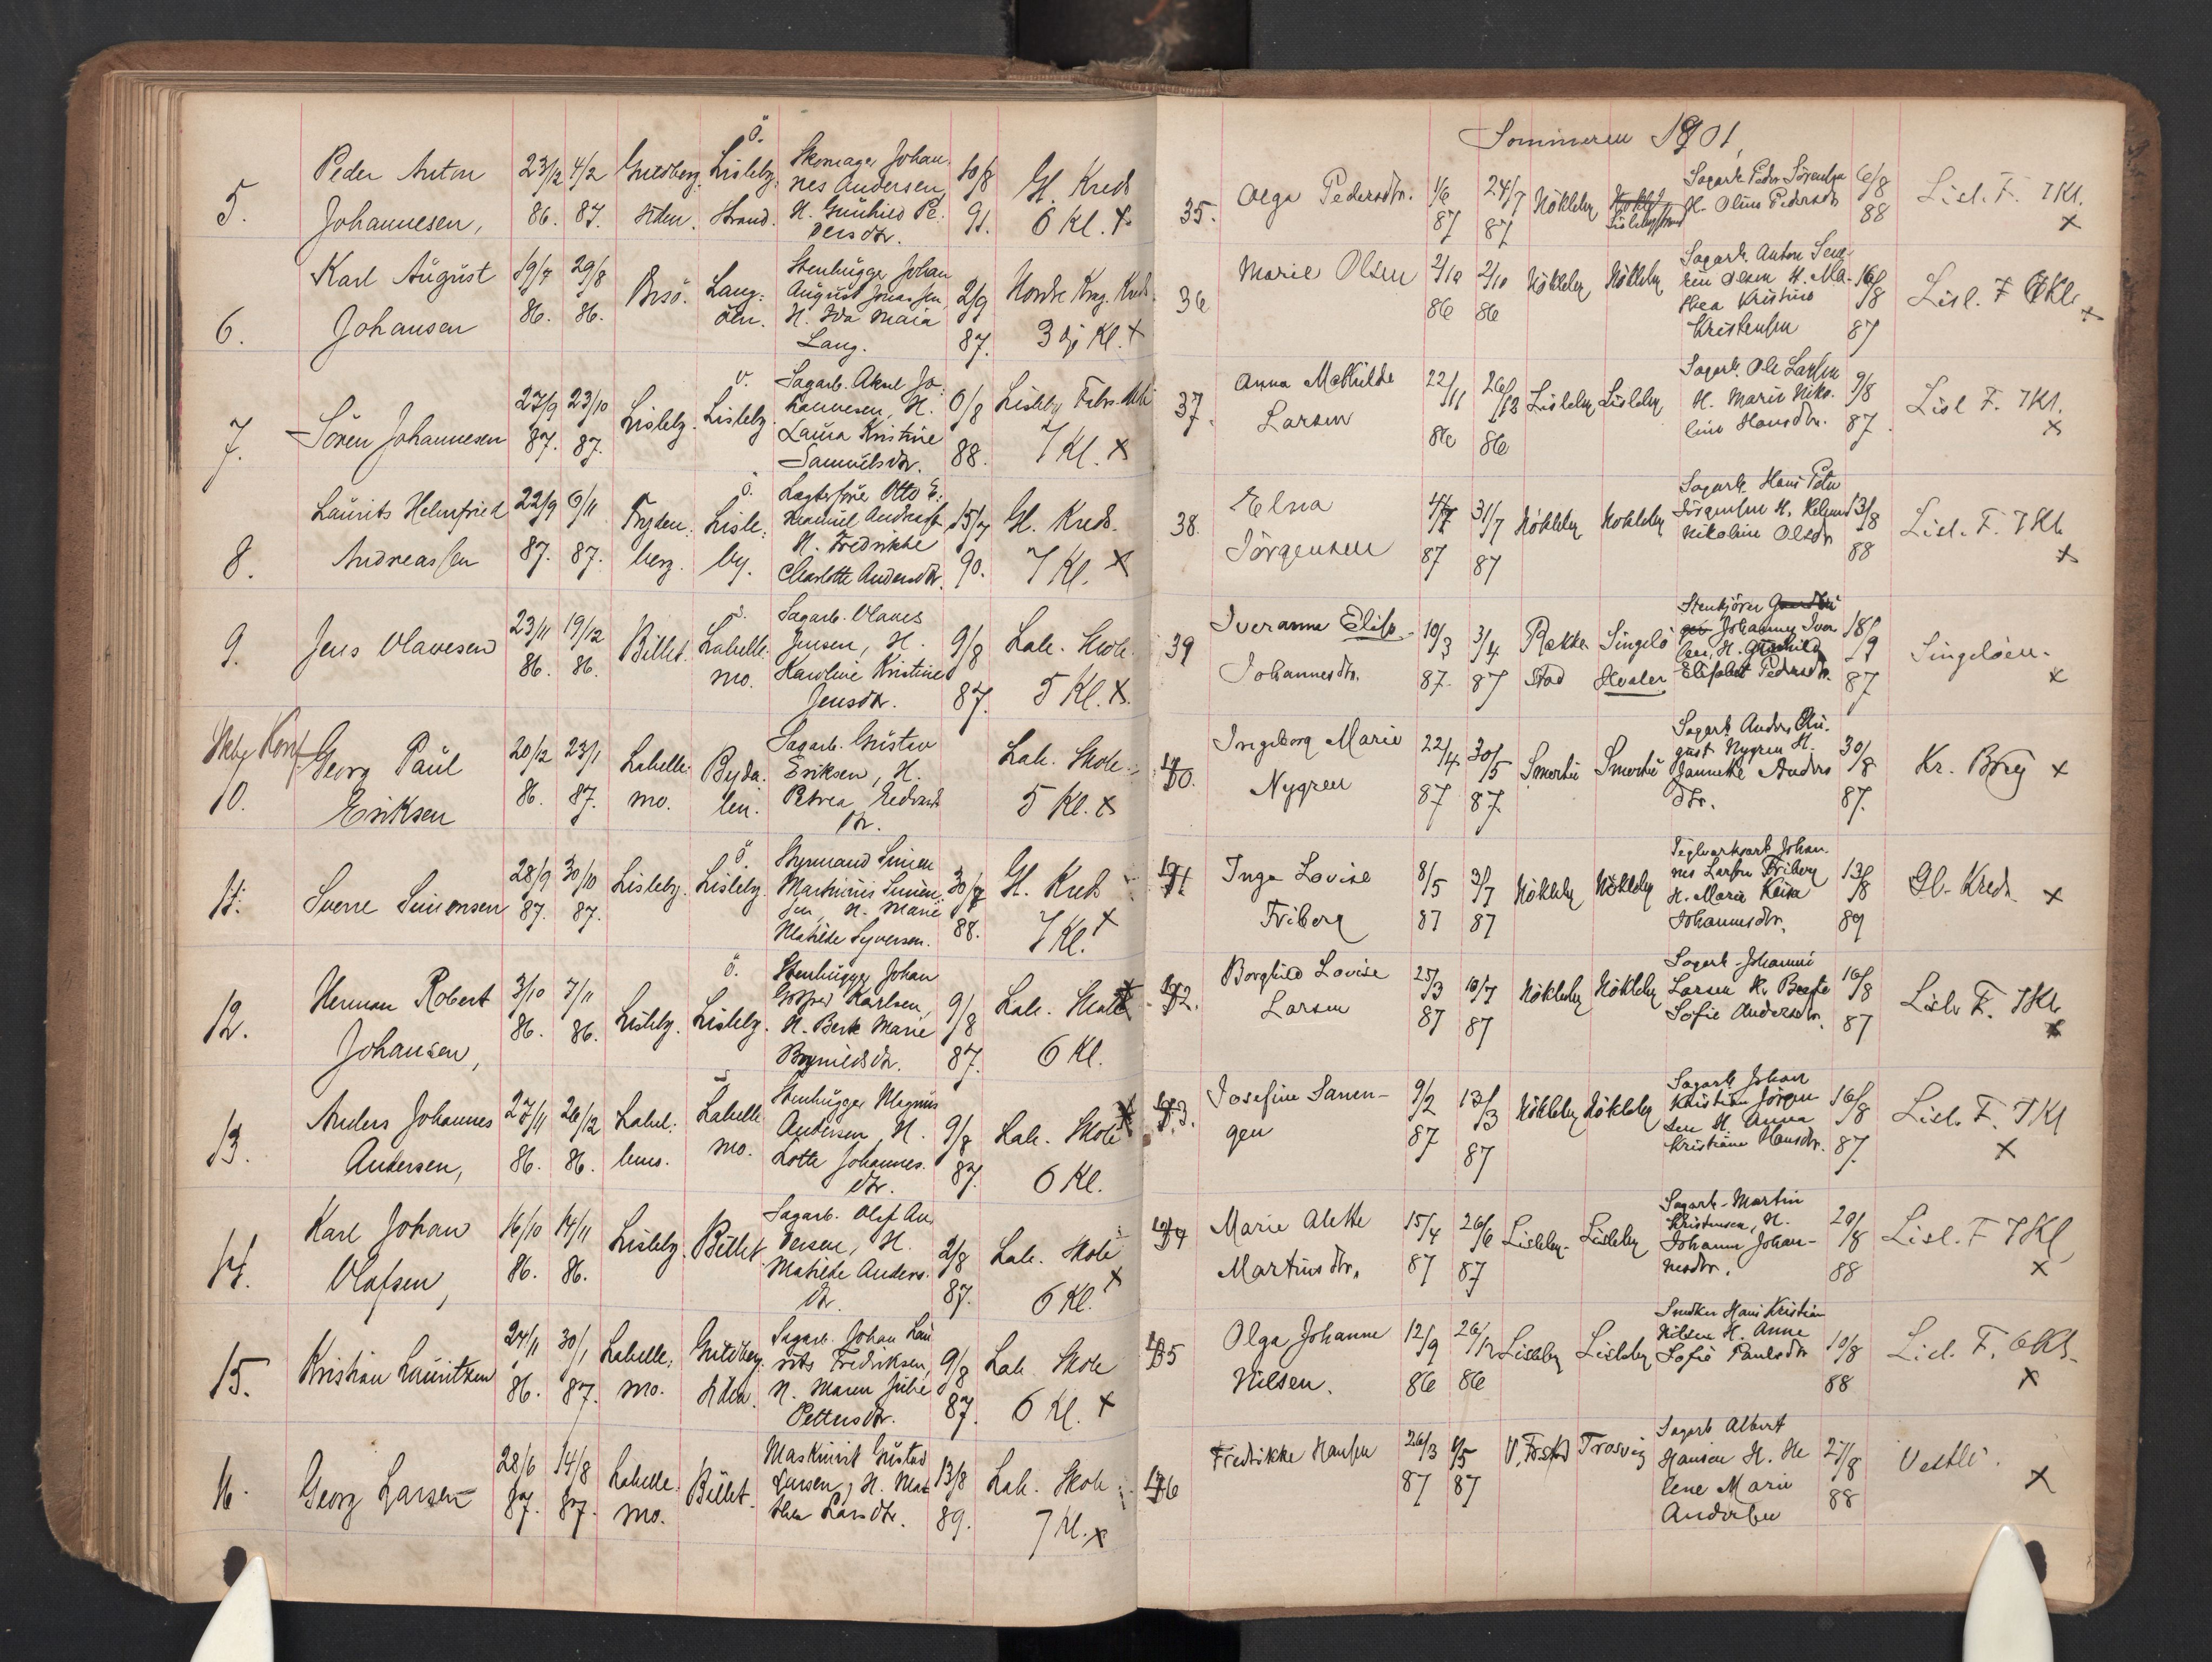 5.
Peder Anton
Johannesen,
23/12 86.
4/2 87.
Guldberg siden.
Ö. Lisleby Strand.
Skomager Johan
nes Andersen,
H. Gunhild Pe
dersdtr.
10/8 91.
Gl. Kreds
6 Kl. x
6.
Karl August
Johansen
19/7 86.
29/8 86.
Orsö.
Lang: öen.
Stenhugger Johan
August Jonassen
H. Ida Maia
Lang.
2/9 87.
3 Kl. x
7.
Sören Johannesen
27/9 87.
23/10 87.
Lisleby.
V. Lisleby.
Sagarb. Aksel Jo:
hannesen, H.
Laura Kristine
Samuelsdtr.
6/8 88.
Lisleby Fabr.
7 Kl. x
8.
Laurits Helmfried
Andreassen
22/9 87.
6/11 87.
Fryden: berg.
Ö. Lisle: by.
Lagterfører Otto E:
manuel Andreass.
H. Fredrikke
Charlotte Andersdtr.
15/7 90.
Gl. Kreds.
7 Kl. x
9.
Jens Olavesen
23/11 86.
19/12 86.
Billet.
Labelle mo.
Sagarb. Olaves
Jensen, H.
Karoline Kristine
Jensdtr.
9/8 87.
Lab. Skole
5 Kl. x
10.
Georg Paul
Eriksen
20/12 86.
23/1 87.
Labelle: mo.
Byda: len.
Sagarb. Gustav
Eriksen, H.
Petrea
dtr.
Lab. Skole
5 Kl. x
11.
Sverre Simonsen
28/9 87.
30/10 87.
Lisleby.
Ö. Lisleby.
Styrmand Simon
Martinius Simon:
sen, H. Marie
Matilde Syversen.
30/7 88.
Gl. Kreds
7 Kl. x
12.
Herman Robert
Johansen,
3/10 86.
7/11 86.
Lisleby.
Ö. Lisleby.
Stenhugger Johan
Gotfred Karlsen,
H. Berte Marie
Brynildsdtr.
9/8 87.
Lab. Skole x
6 Kl.
13.
Anders Johannes
Andersen,
27/11 86.
26/12 86.
Label: lemo.
Labelle mo.
Stenhugger Magnus
Andersen, H.
Lotte Johannes.
dtr.
9/8 87.
Lab. Skole x
6 Kl.
14.
Karl Johan
Olafsen,
16/10 86.
14/11 86.
Lisleby.
Billet.
Sagarb. Olaf An.
dersen, H.
Matilde Anders.
dtr.
2/8 87.
Lab. Skole
6 Kl. x
15.
Kristian Lauritzen
24/11 86.
30/1 87.
Labelle, mo.
Guldberg. siden.
Sagarb. Johan Lau
rits Fredriksen,
H. Maren Julie
Pettersdtr.
9/8 87.
Lab. Skole
6 Kl. x
16.
Georg Larsen
28/6 87.
14/8 87.
Labelle. mo.
Billet.
Maskinist Gustav
Larsen, H. Mat
thea Larsdtr.
13/8 89.
Lab. Skole
7 Kl. x
Sommeren 1901,
35.
Olga Pedersdtr.
1/6 87
24/7 87
Nökleby
Lislebystrand
Sagarb. Peder
H. Oline Pedersdtr
6/8 88
Lisl. F. 7 Kl.
x
36
Marie Olsen
2/10 86
2/10 86
Nökleby
Nökleby
Sagarb. Anton Seve
rin Olsen H. Ma-
thea Kristine
Kristensen
16/8 87
Lisl. F Kl.
x
37.
Anna Mathilde
Larsen
22/11 86
26/12 86
Lisleby
Lisleby
Sagarb. Ole Larsen
H. Marie Niko.
line Hansdtr.
9/8 87.
Lisl F. 7 Kl.
x
38.
Elna
Jörgensen
87
31/7 87
Nökleby
Nökleby
Sagarb. Hans Peter
Jörgensen H. Helene
Nikoline Olsdtr
13/8 88
Lisl. F. 7 Kl.
x
39
Iveranna Elise
Johannesdtr.
10/3 87.
3/4 87
Rekke stad
Singelö Hvaler
Stenkjörer
Johannes Iver
sen, H.
Elisabet Pedersdtr.
18/9 87
Singelöen.
x
40.
Ingeborg Marie
Nygren
22/4 87
30/5 87.
Smertu
Smertu
Sagarb Anders Au.
gust Nygren H.
Janneke Anders
dtr.
30/8 87.
Kr. Bryg x
41
Inga Lovise
Friberg
8/5 87
3/7 87
Nökleby
Nökleby
Teglverksarb Johan.
nes Larsen Friberg
H. Marie Kaisa
Johannesdtr.
13/8 89
Gl. Kreds x
42.
Borghild Lovise
Larsen
25/3 87
10/7 87
Nökleby
Nökleby
Sagarb. Johannes
Larsen H. Beate
Sofie Andersdtr.
16/8 87
Lisl. F. 7 Kl.
x
43.
Josefine Sannen-
gen
9/2 87
13/3 87
Nökleby
Nökleby
Sagarb. Johan
Kristian Jörgen
sen H. Anna
Kristiane Hansdtr.
16/8 87.
Lisl. F. 7 Kl
x
44
Marie Alette
Martinsdtr.
15/4 87
26/6 87
Lisleby.
Lisleby
Sagarb. Martin
Kristensen, H.
Johanne Johan-
nesdtr.
20/8 88
Lisl. F 7 Kl,
x
45
Olga Johanne
Nilsen.
12/9 86
26/12 86
Lisleby
Lisleby
Snedker Hans Kristian
Nilsen H. Anne
Sofie Paulsdtr
10/8 88
Lisl. F. 6 Kl.
x
46
Fredrikke Hansen
26/3 87
8/5 87
V. Fr.stad
Trosvig
Sagarb Albert
Hansen H. He
lene Marie
Andersen
27/8 88
Vestli.
x